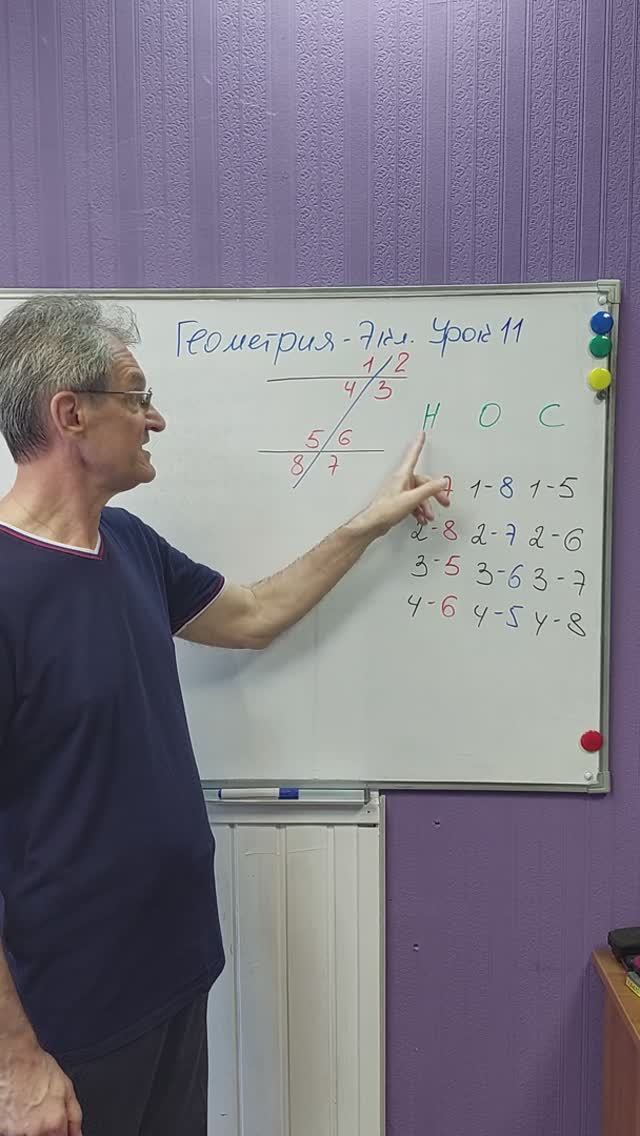 Геометрия - 7кл. Урок 11
1 2
4 3
5 6
8 7
Н О С
7 1-8 1-5
2-8 2-7 2-6
3-5 3-6 3-7
4-6 4-5 4-8